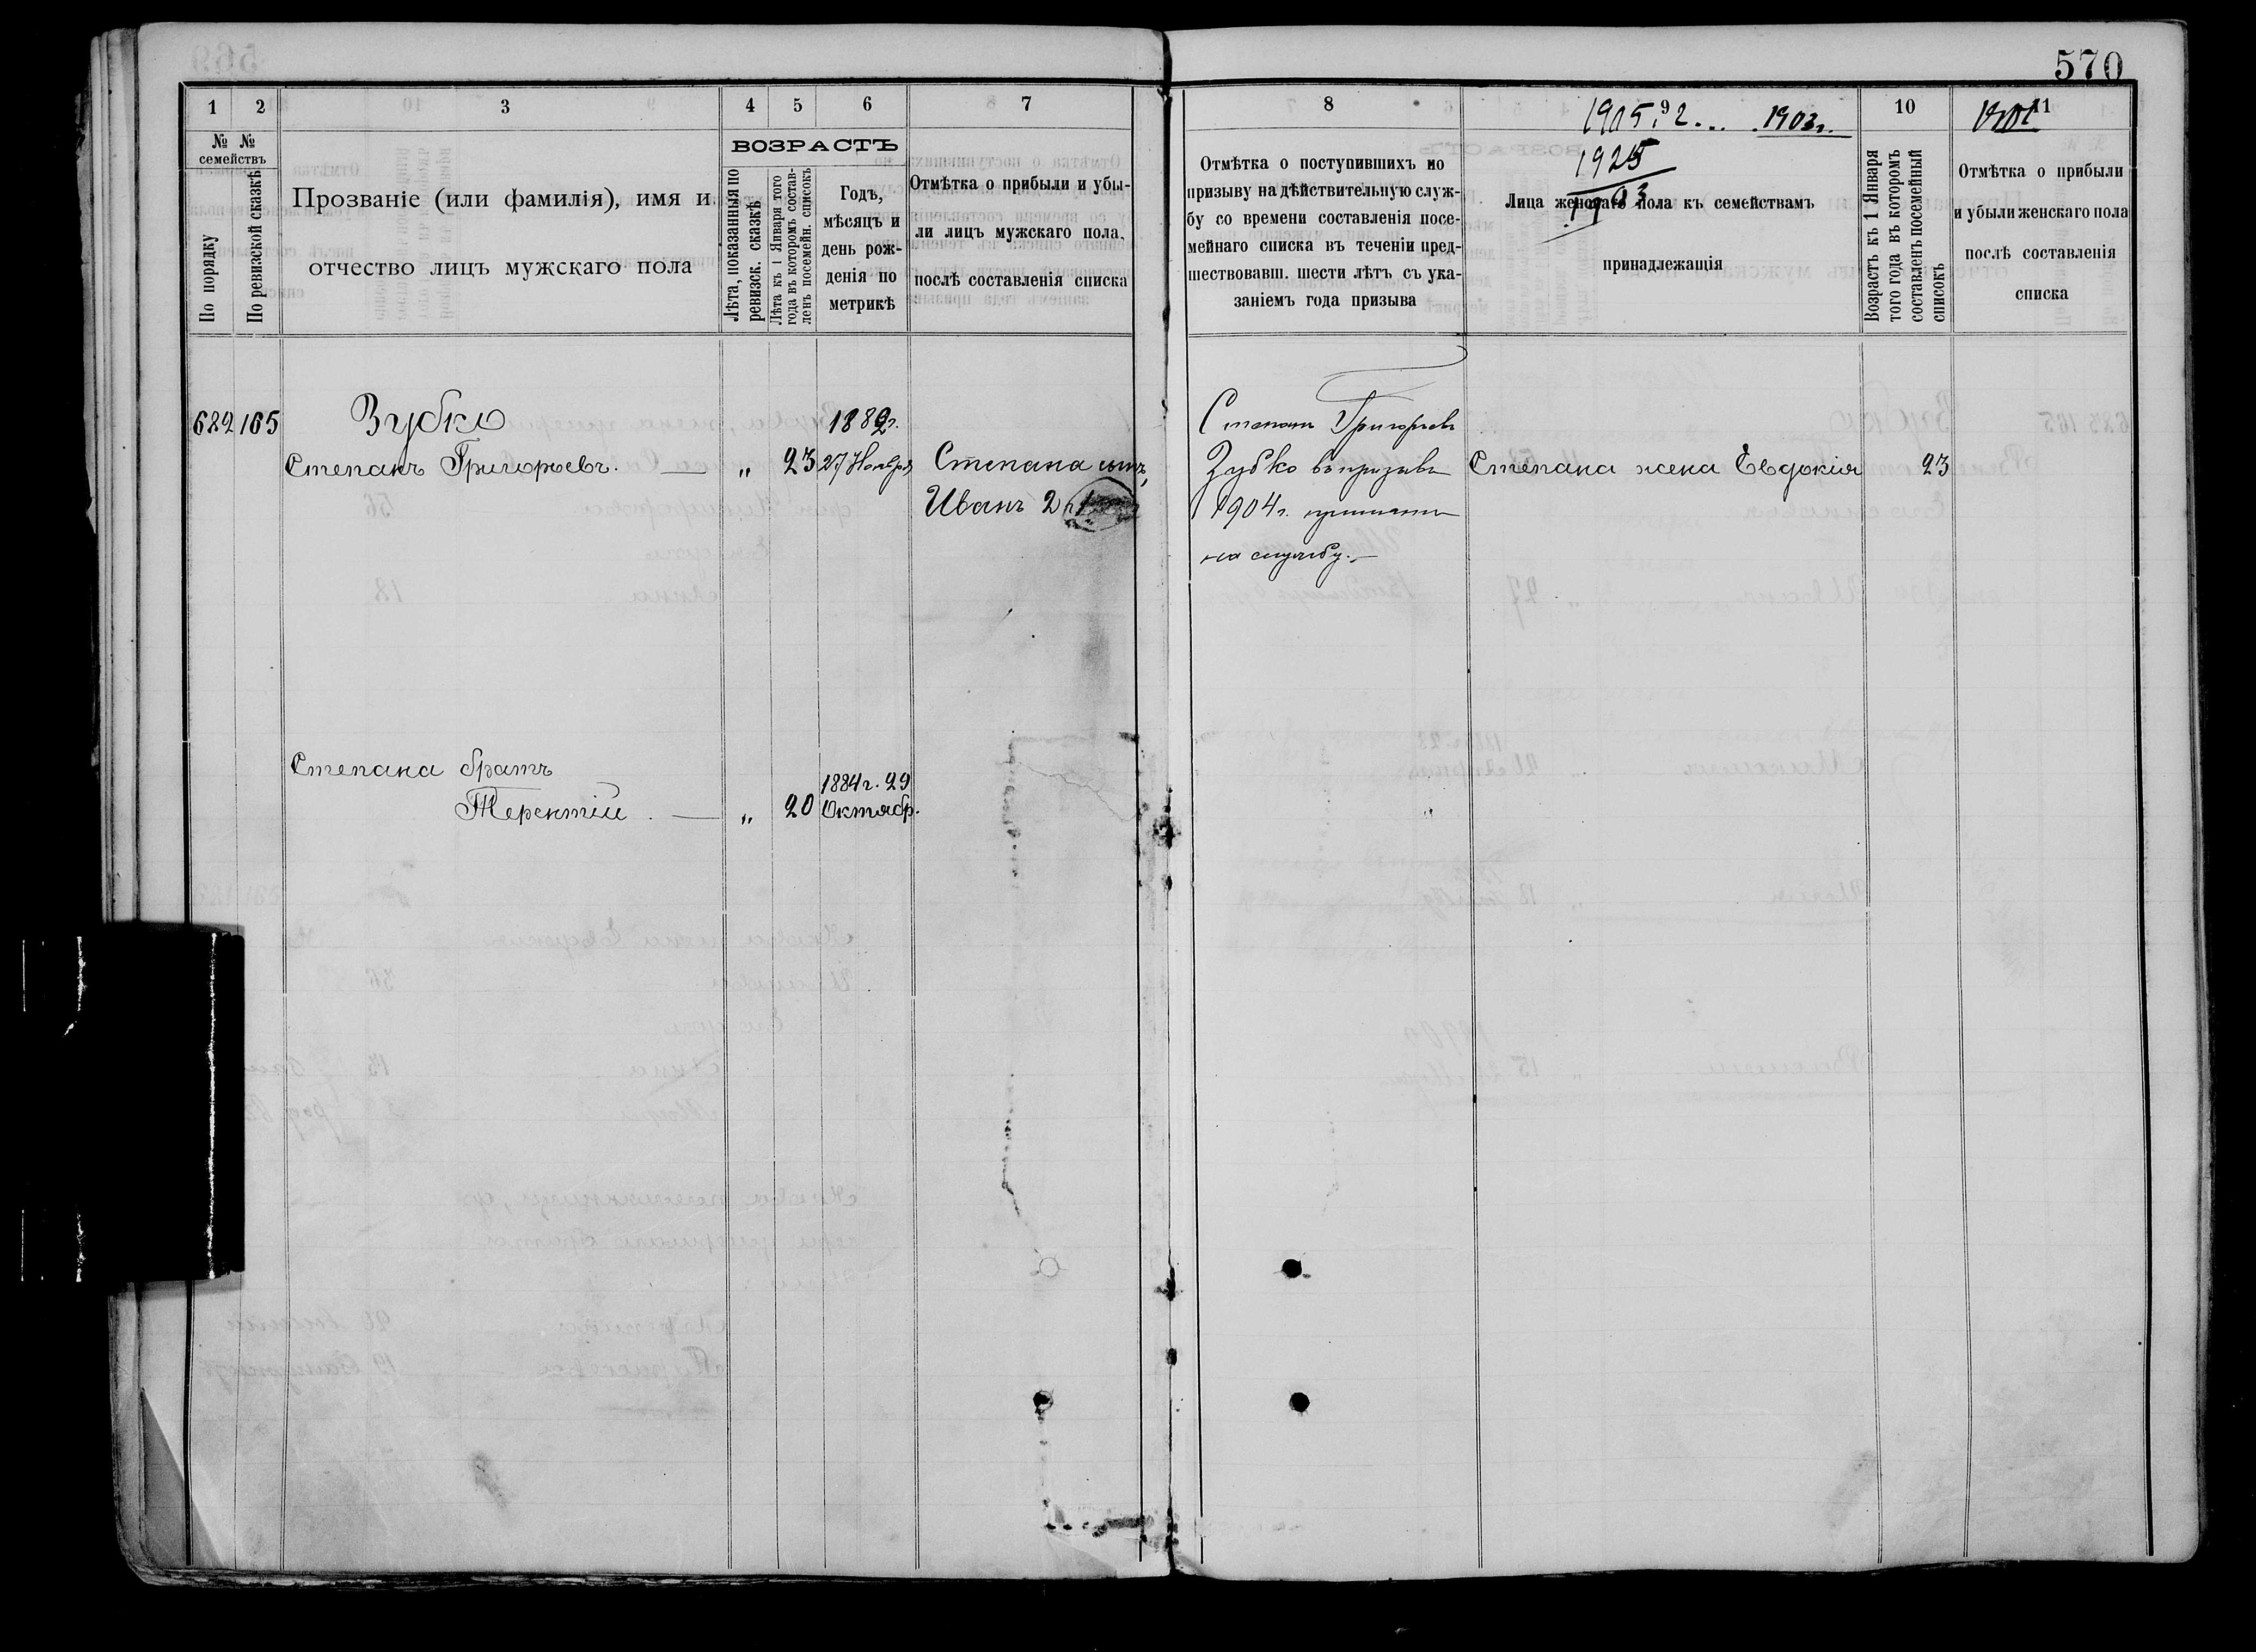 570
1 2 3 4 5 6 7
№ №
семействъ
По порядку
По ревизской сказкѣ
Прозваніе (или фамилія), имя и
отчество лицъ мужскаго пола
ВОЗРАСТЪ
Лѣта, показанныя по
ревизск. сказкѣ
Лѣта къ 1 Января того
года въ которомъ состав-
ленъ посемейн. списокъ
Годъ,
мѣсяцъ и
день рож-
денія по
метрикѣ
Отмѣтка о прибыли и убы-
ли лицъ мужскаго пола,
послѣ составленія списка
682 165 Зубко 1882г.
Степанъ Григорьевъ. — „ 23 27 Ноября Степана сынъ,
Иванъ 2
Степана братъ 1884 г. 29
Терентій — „ 20 Октябр.
8 9 10 11
1905 2 1903г. 
1925
1903
Отмѣтка о поступившихъ по
призыву на дѣйствительную служ-
бу со времени составленія посе-
мейнаго списка въ теченіи пред-
шествовавш. шести лѣтъ съ ука-
заніемъ года призыва
Лица женскаго пола къ семействамъ
принадлежащія
Возрастъ къ 1 Января
того года въ которомъ
составленъ посемейный
списокъ
Отмѣтка о прибыли
и убыли женскаго пола
послѣ составленія
списка
Степанъ Григорьевъ
Зубко въ призывъ Степана жена Евдокія 23
1904 г. принятъ
на службу.—